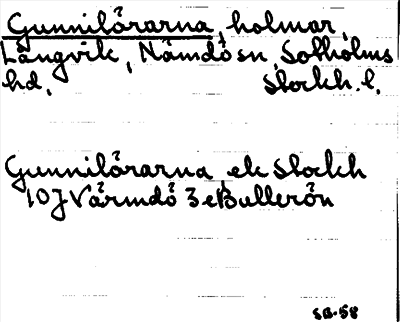 Gunnilörarna, holmar,
Långvik, Nämdö sn, Sotholms
hd, Stockh. l.
Gunnilörarna ek Stockh
10J Värmdö 3e Bullerön
SB-58